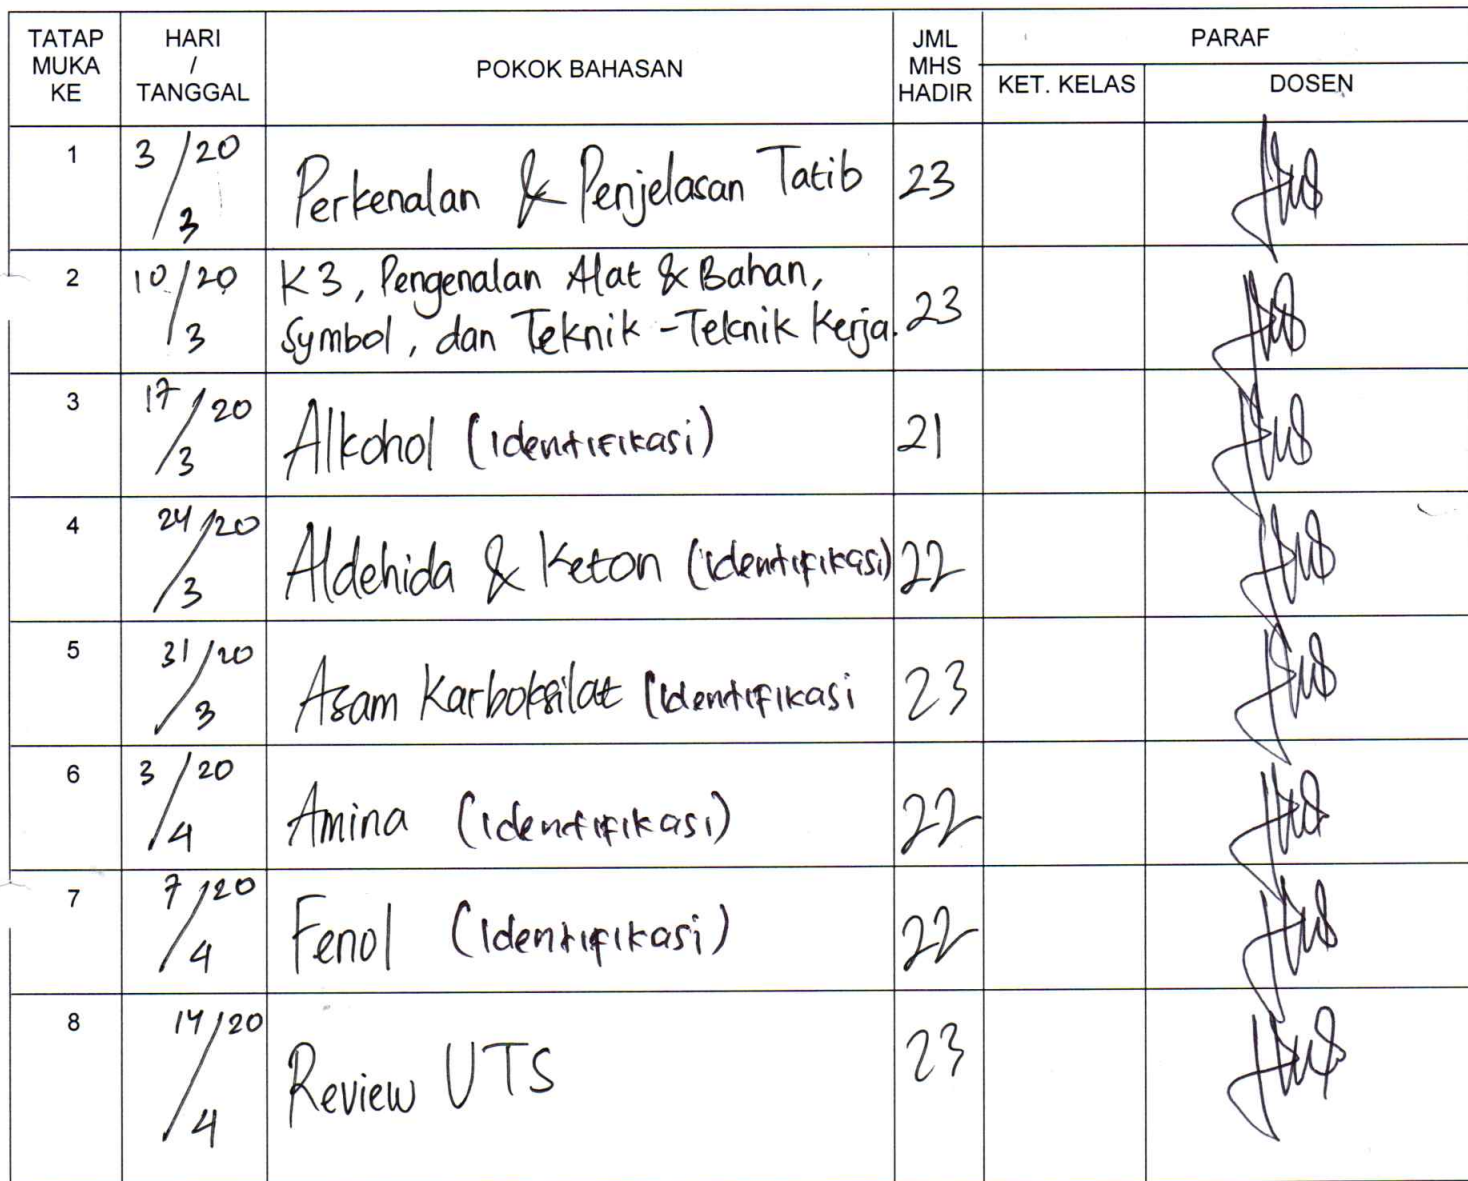 TATAP MUKA KE | HARI / TANGGAL | POKOK BAHASAN | JML MHS HADIR | PARAF
KET. KELAS | DOSEN
1 | 3/20/3 | Perkenalan & Penjelasan Tatib | 23
2 | 10/20/3 | K3, Pengenalan Alat & Bahan,
Symbol, dan Teknik-Teknik Kerja. | 23
3 | 17/20/3 | Alkohol (Identifikasi) | 21
4 | 24/20/3 | Aldehida & Keton (identifikasi) | 22
5 | 31/20/3 | Asam Karboksilat (Identifikasi | 23
6 | 3/20/4 | Amina (Identifikasi) | 22
7 | 7/20/4 | Fenol (Identifikasi) | 22
8 | 14/20/4 | Review UTS | 23